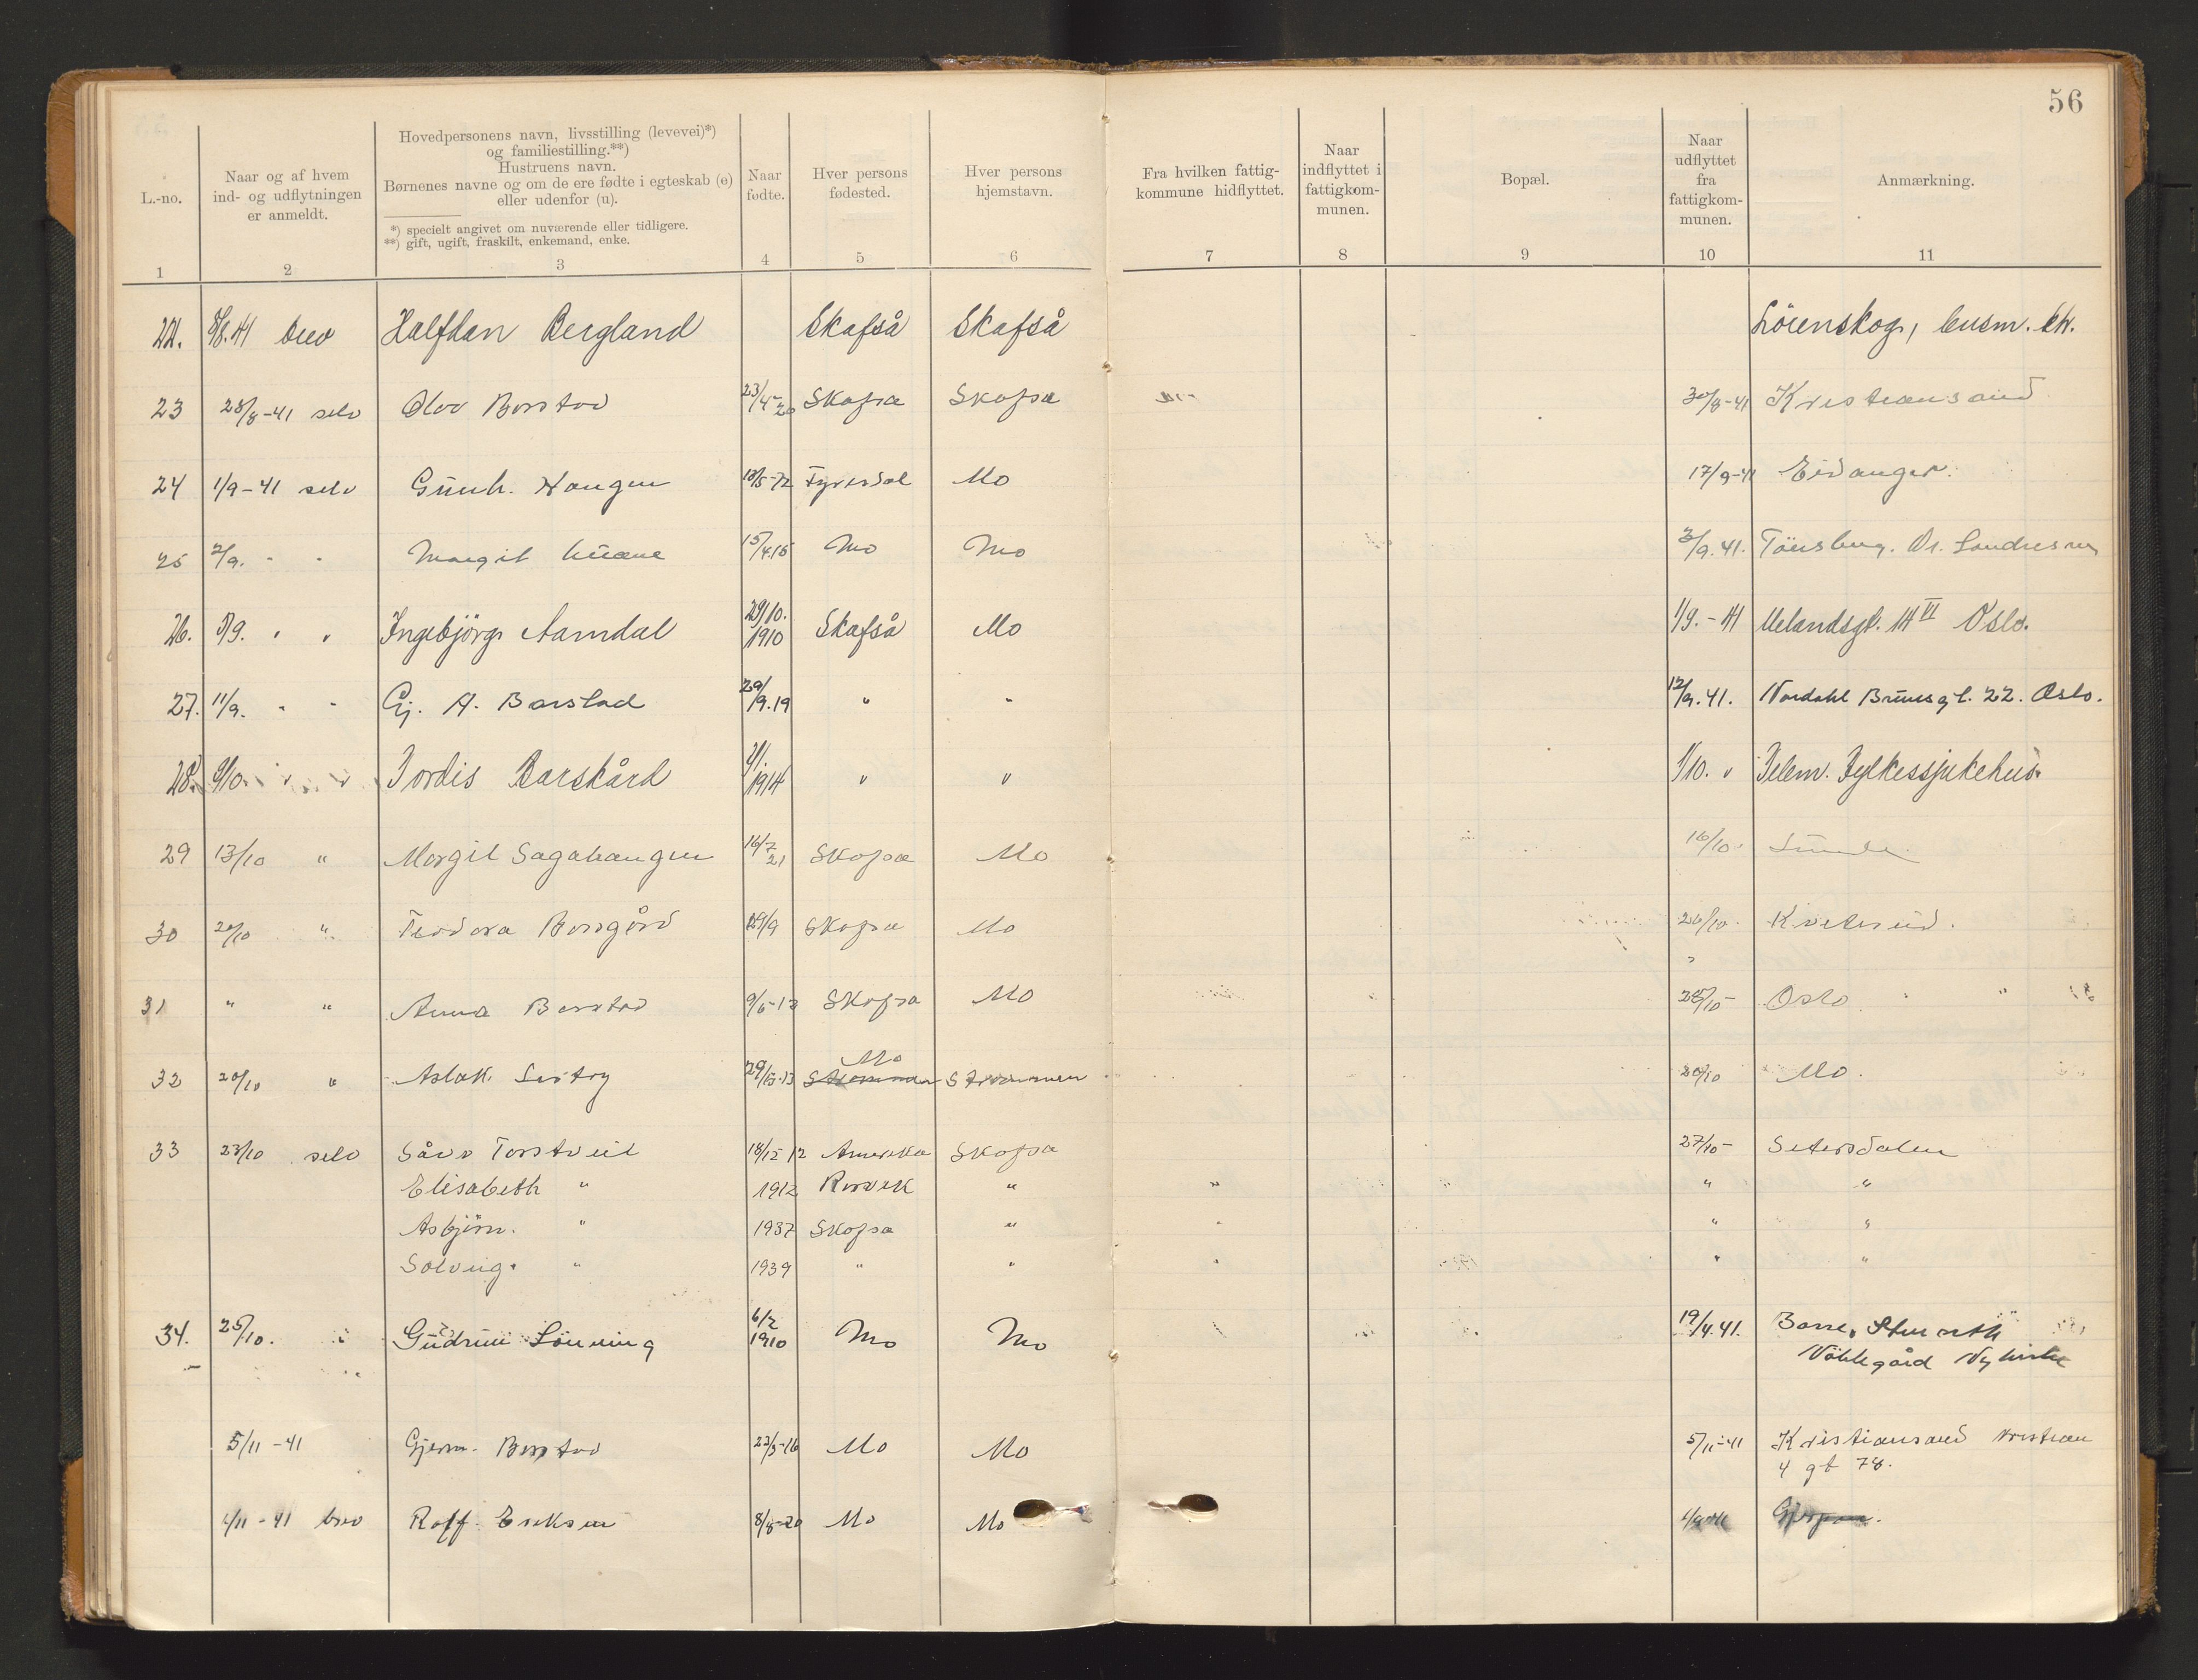 56
L.-no.
Naar og af hvem
ind- og udflytningen
er anmeldt.
Hovedpersonens navn, livsstilling (levevei)*)
og familiestilling.**)
Hustruens navn.
Børnenes navne og om de ere fødte i egteskab (e)
eller udenfor (u).
*) specielt angivet om nuværende eller tidligere.
**) gift, ugift, fraskilt, enkemand, enke.
Naar
fødte.
Hver persons
fødested.
Hver persons
hjemstavn.
Fra hvilken fattig-
kommune hidflyttet.
Naar
indflyttet i
fattigkom-
munen.
Bopæl.
Naar
udflyttet
fra
fattigkom-
munen.
Anmærkning.
1 2 3 4 5 6 7 8 9 10 11
22. brev Halfdan Bergland Skafså Skafså Lörenskog,
23 28/8-41 selv Olav Borstad 23/4-20 Skafsa Skafsa 30/8-41 Kristiansand
24 1/9-41 selv Gunh. Haugen 18/5-72 Fyresdal Mo 17/9-41 Eidanger.
25 2/9. " " Margit 15/4.15 Mo Mo 3/9.41. Tönsberg. Dr.
26. 5/9. " " Ingebjörg Aamdal 29/10. 1910 Skafså Mo 1/9.-41 Uelandsgt. 14 VI Oslo.
27. 11/9. " " Gj. A. Barstad 29/9.19 " " 12/9.41. Nordahl Brunsgt. 22. Oslo.
28. " " Tordis Barskård 1914 " " 1/10. " Telem. Fylkessjukehus.
29 13/10 " Margit Sagahaugen 16/7 21 Skafsa Mo 16/10.
30 20/10 " Teodora Borsgård 29/9 Skafsa Mo 26/10. Kviteseid.
31 " " Anna Borstad 9/6-13 Skafsa Mo 28/10- Oslo. " "
Mo
32 20/10 " Aslak 29/12-13 Strømmen Strømmen 20/10 Mo.
33 23/10 selv Såve Torstveit 18/12 12 Amerika Skafsa 27/10- Setersdalen
Elisabeth " 1912 Rosvik " " " "
Asbjörn. " 1937 Skafsa " " " "
Solveig. " 1939 " " " " "
34. 25/10. " Gudrun Lönning 6/2 1910 Mo Mo 19/4.41. Borre,
Nykirke
5/11-41 Gjerm. Borstad 23/5-16 Mo Mo 5/11-41 Kristiansand Kristian
4 gt 78.
4/11-41 brev Rolf Eriksen 8/8-20 Mo Mo Gjerpen.